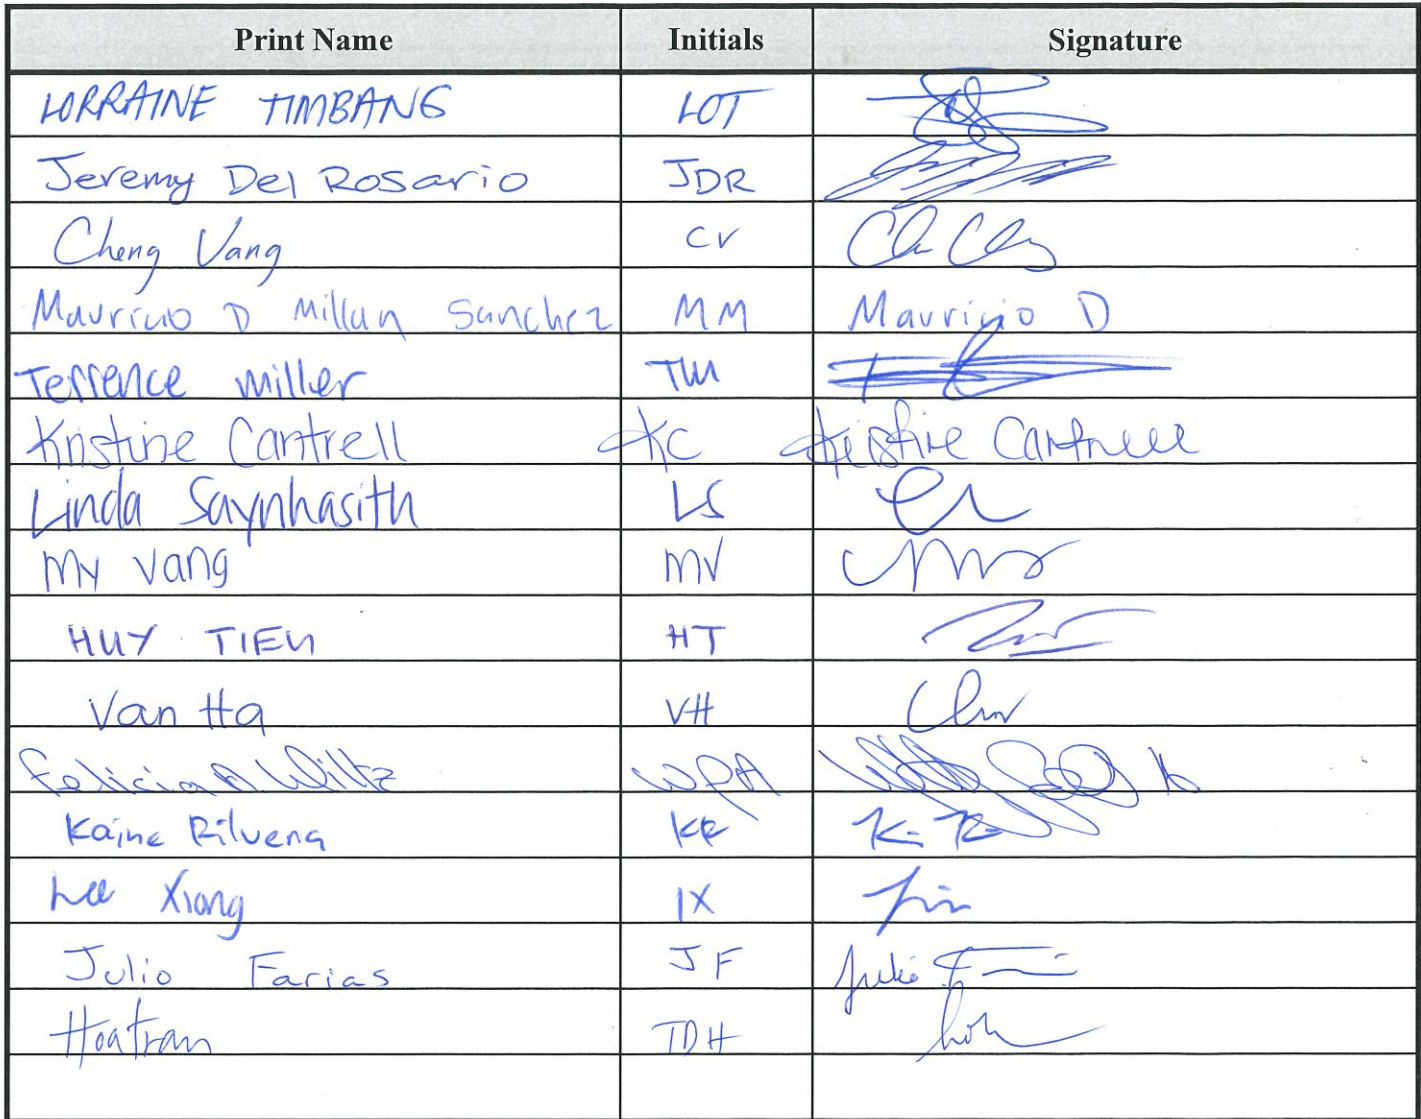 Print Name Initials Signature
LORRAINE TIMBANG LOT
Jeremy Del Rosario JDR
Cheng Vang CV
Mauricio D Millan Sanchez MM Mauricio D
Terrence miller TM
Kristine Cantrell KC Kristine Cantrell
Linda Saynhasith LS
My Vang MV
HUY TIEN HT
Van Ha VH
Felicia A Wiltz WFA
Kaine Rilvena KR K R
Lee Xiong LX
Julio Farias JF Julio F
Hoa tran TDH hoa